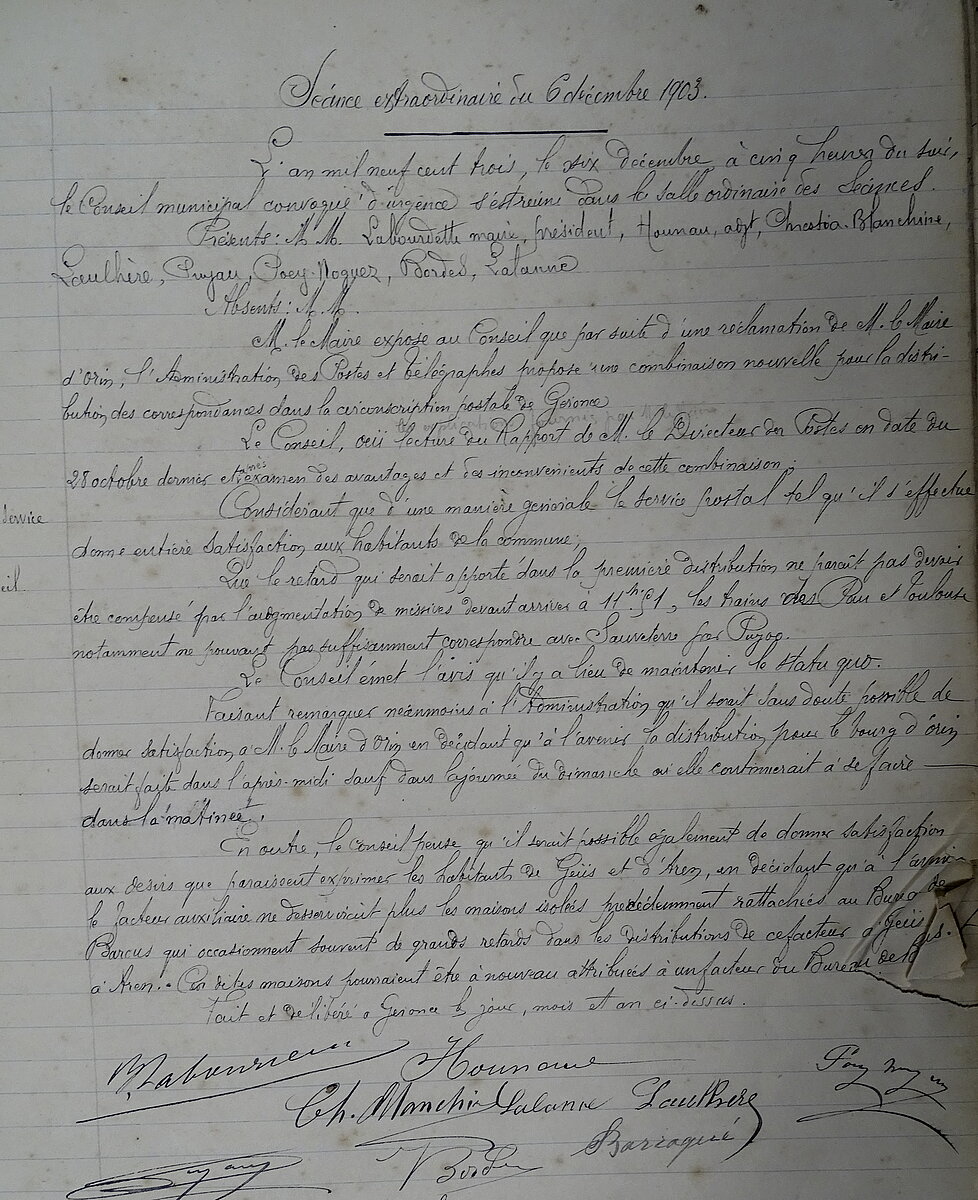 Séance extraordinaire du 6 décembre 1903.
L'an mil neuf cent trois, le six décembre, à cinq heures du soir,
le Conseil municipal convoqué d'urgence s'est réuni dans la salle ordinaire des Séances.
Présents: M.M. Labourdette maire, président, Hounau, adjt, Chrestia-Blanchine,
Laulhère, Puyau, Poey-Noguez, Bordes, Lalanne
Absents: M.M.
M. le Maire expose au Conseil que par suite d'une réclamation de M. le Maire
d'Orin, l'Administration des Postes et télégraphes propose une combinaison nouvelle pour la distri-
bution des correspondances dans la circonscription postale de Geronce
Le Conseil, ouï lecture du Rapport de M. le Directeur des Postes en date du
28 octobre dernier et après examen des avantages et des inconvenients de cette combinaison;
Considérant que d'une manière générale le service postal tel qu'il s'effectue
Service
donne entière satisfaction aux habitants de la commune;
Que le retard qui serait apporté dans la première distribution ne paraît pas devoir
eil.
être compensé par l'augmentation de missives devant arriver à 11h 51, les trains des Pau et Toulouse
notamment ne pouvant pas suffisamment correspondre avec Sauveterre par Puyoo.
Le Conseil émet l'avis qu'il y a lieu de maintenir le statu quo.
Faisant remarquer néanmoins à l'Administration qu'il serait sans doute possible de
donner satisfaction à M. le Maire d'Orin en décidant qu'à l'avenir la distribution pour le bourg d'Orin
serait faite dans l'après-midi sauf dans la journée du dimanche où elle continuerait à se faire
dans la matinée.
En outre, le Conseil pense qu'il serait possible également de donner satisfaction
aux désirs que paraissent exprimer les habitants de Geüs et d'Aren, en décidant qu'à l'avenir
le facteur auxiliaire ne desservirait plus les maisons isolées précédemment rattachées au Bureau de
Barcus qui occasionnent souvent de grands retards dans les distributions de ce facteur à Geüs
à Aren. Ces dites maisons pourraient être à nouveau attribuées à un facteur du Bureau de
Fait et délibéré à Geronce le jour, mois et an ci-dessus.
Hounau
Lalanne Laulhère
Bordes Barraqué